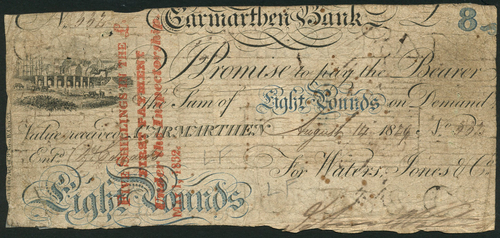 No 552
Carmarthen Bank
8
I Promise to pay the Bearer
the Sum of Eight Pounds on Demand
Value received CARMARTHEN August 14 1829 No 552
Entd
For Waters, Jones & Co
Eight Pounds
FIVE SHILLINGS IN THE £
FIRST PAYMENT
Under the
1832.